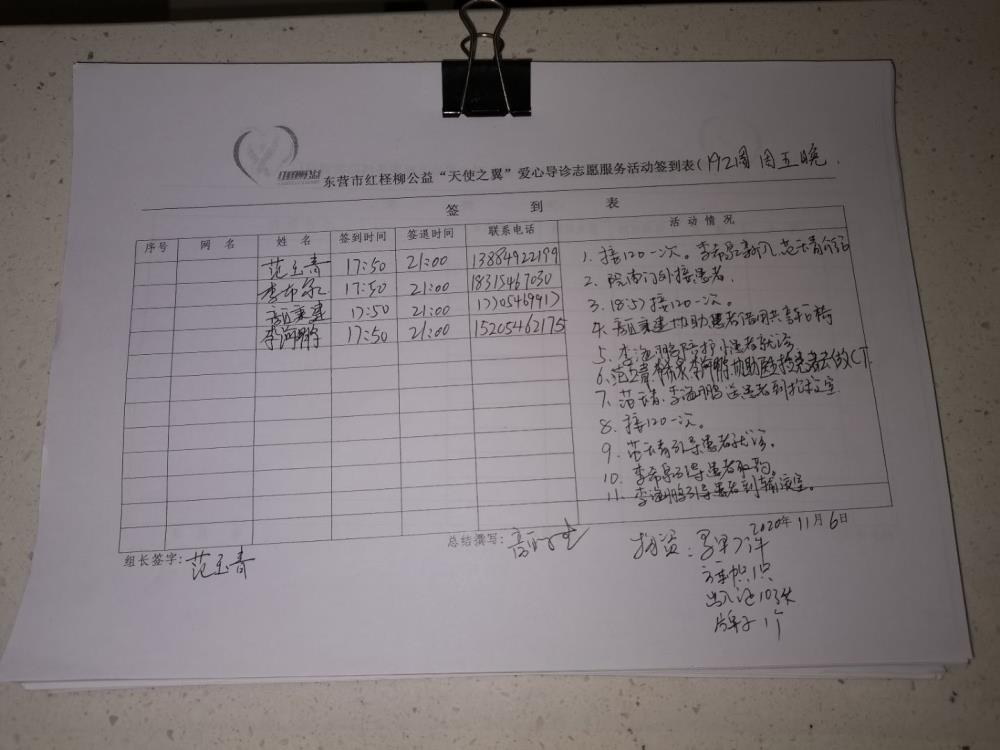 东营市红柽柳公益“天使之翼”爱心导诊志愿服务活动签到表(192周周五晚
签 到 表
序号 网 名 姓 名 签到时间 签退时间 联系电话 活 动 情 况
范玉青 17:50 21:00 13884922199
李希泉 17:50 21:00 18315467030
17:50 21:00
李海鹏 17:50 21:00 15205462175
1. 接120一次。李希泉
2. 院南门外接患者。
3. 18:57接120一次。
4. 协助患者借用共享轮椅
5. 李海鹏陪护小患者就诊
6. 范玉青 李希泉 李海鹏协助 患者去做CT
7. 范玉青、李海鹏送患者到抢救室
8. 接120一次。
9. 范玉青引导患者就诊。
10. 李希泉引导患者取药。
11. 李海鹏引导患者到输液室。
组长签字: 范玉青
总结撰写:
2020年11月6日
物资: 马甲7件
出入证10张
牌子1个